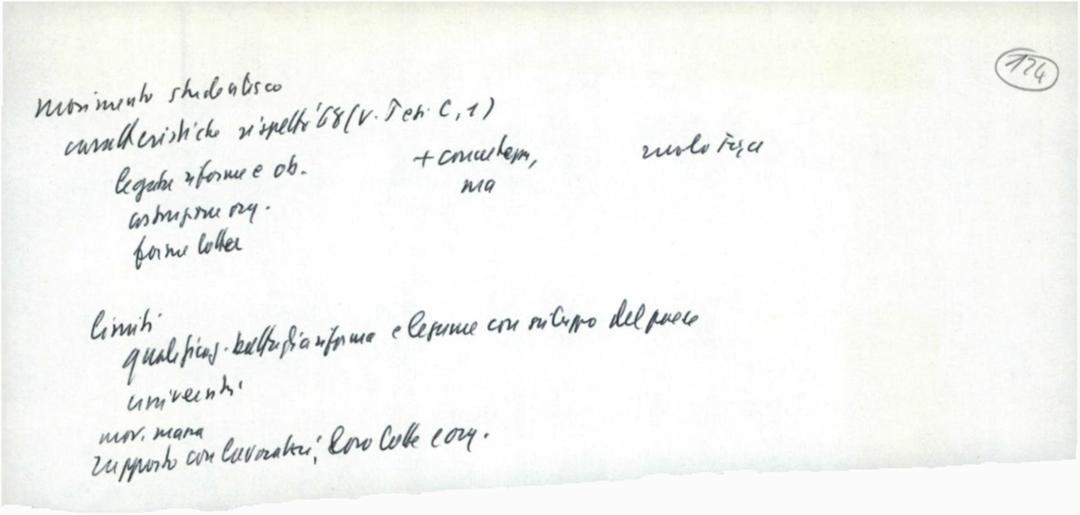 124
movimento studentesco
caratteristiche rispetto '68 (v. Tesi C, 1)
legate riforme e ob. + concretezza, ruolo Fgce
ma
costruzione org.
forme lotta
limiti
qualificaz. battaglia riforma e legame con sviluppo del paese
università
mov. massa
rapporto con lavoratori, loro lotte e org.